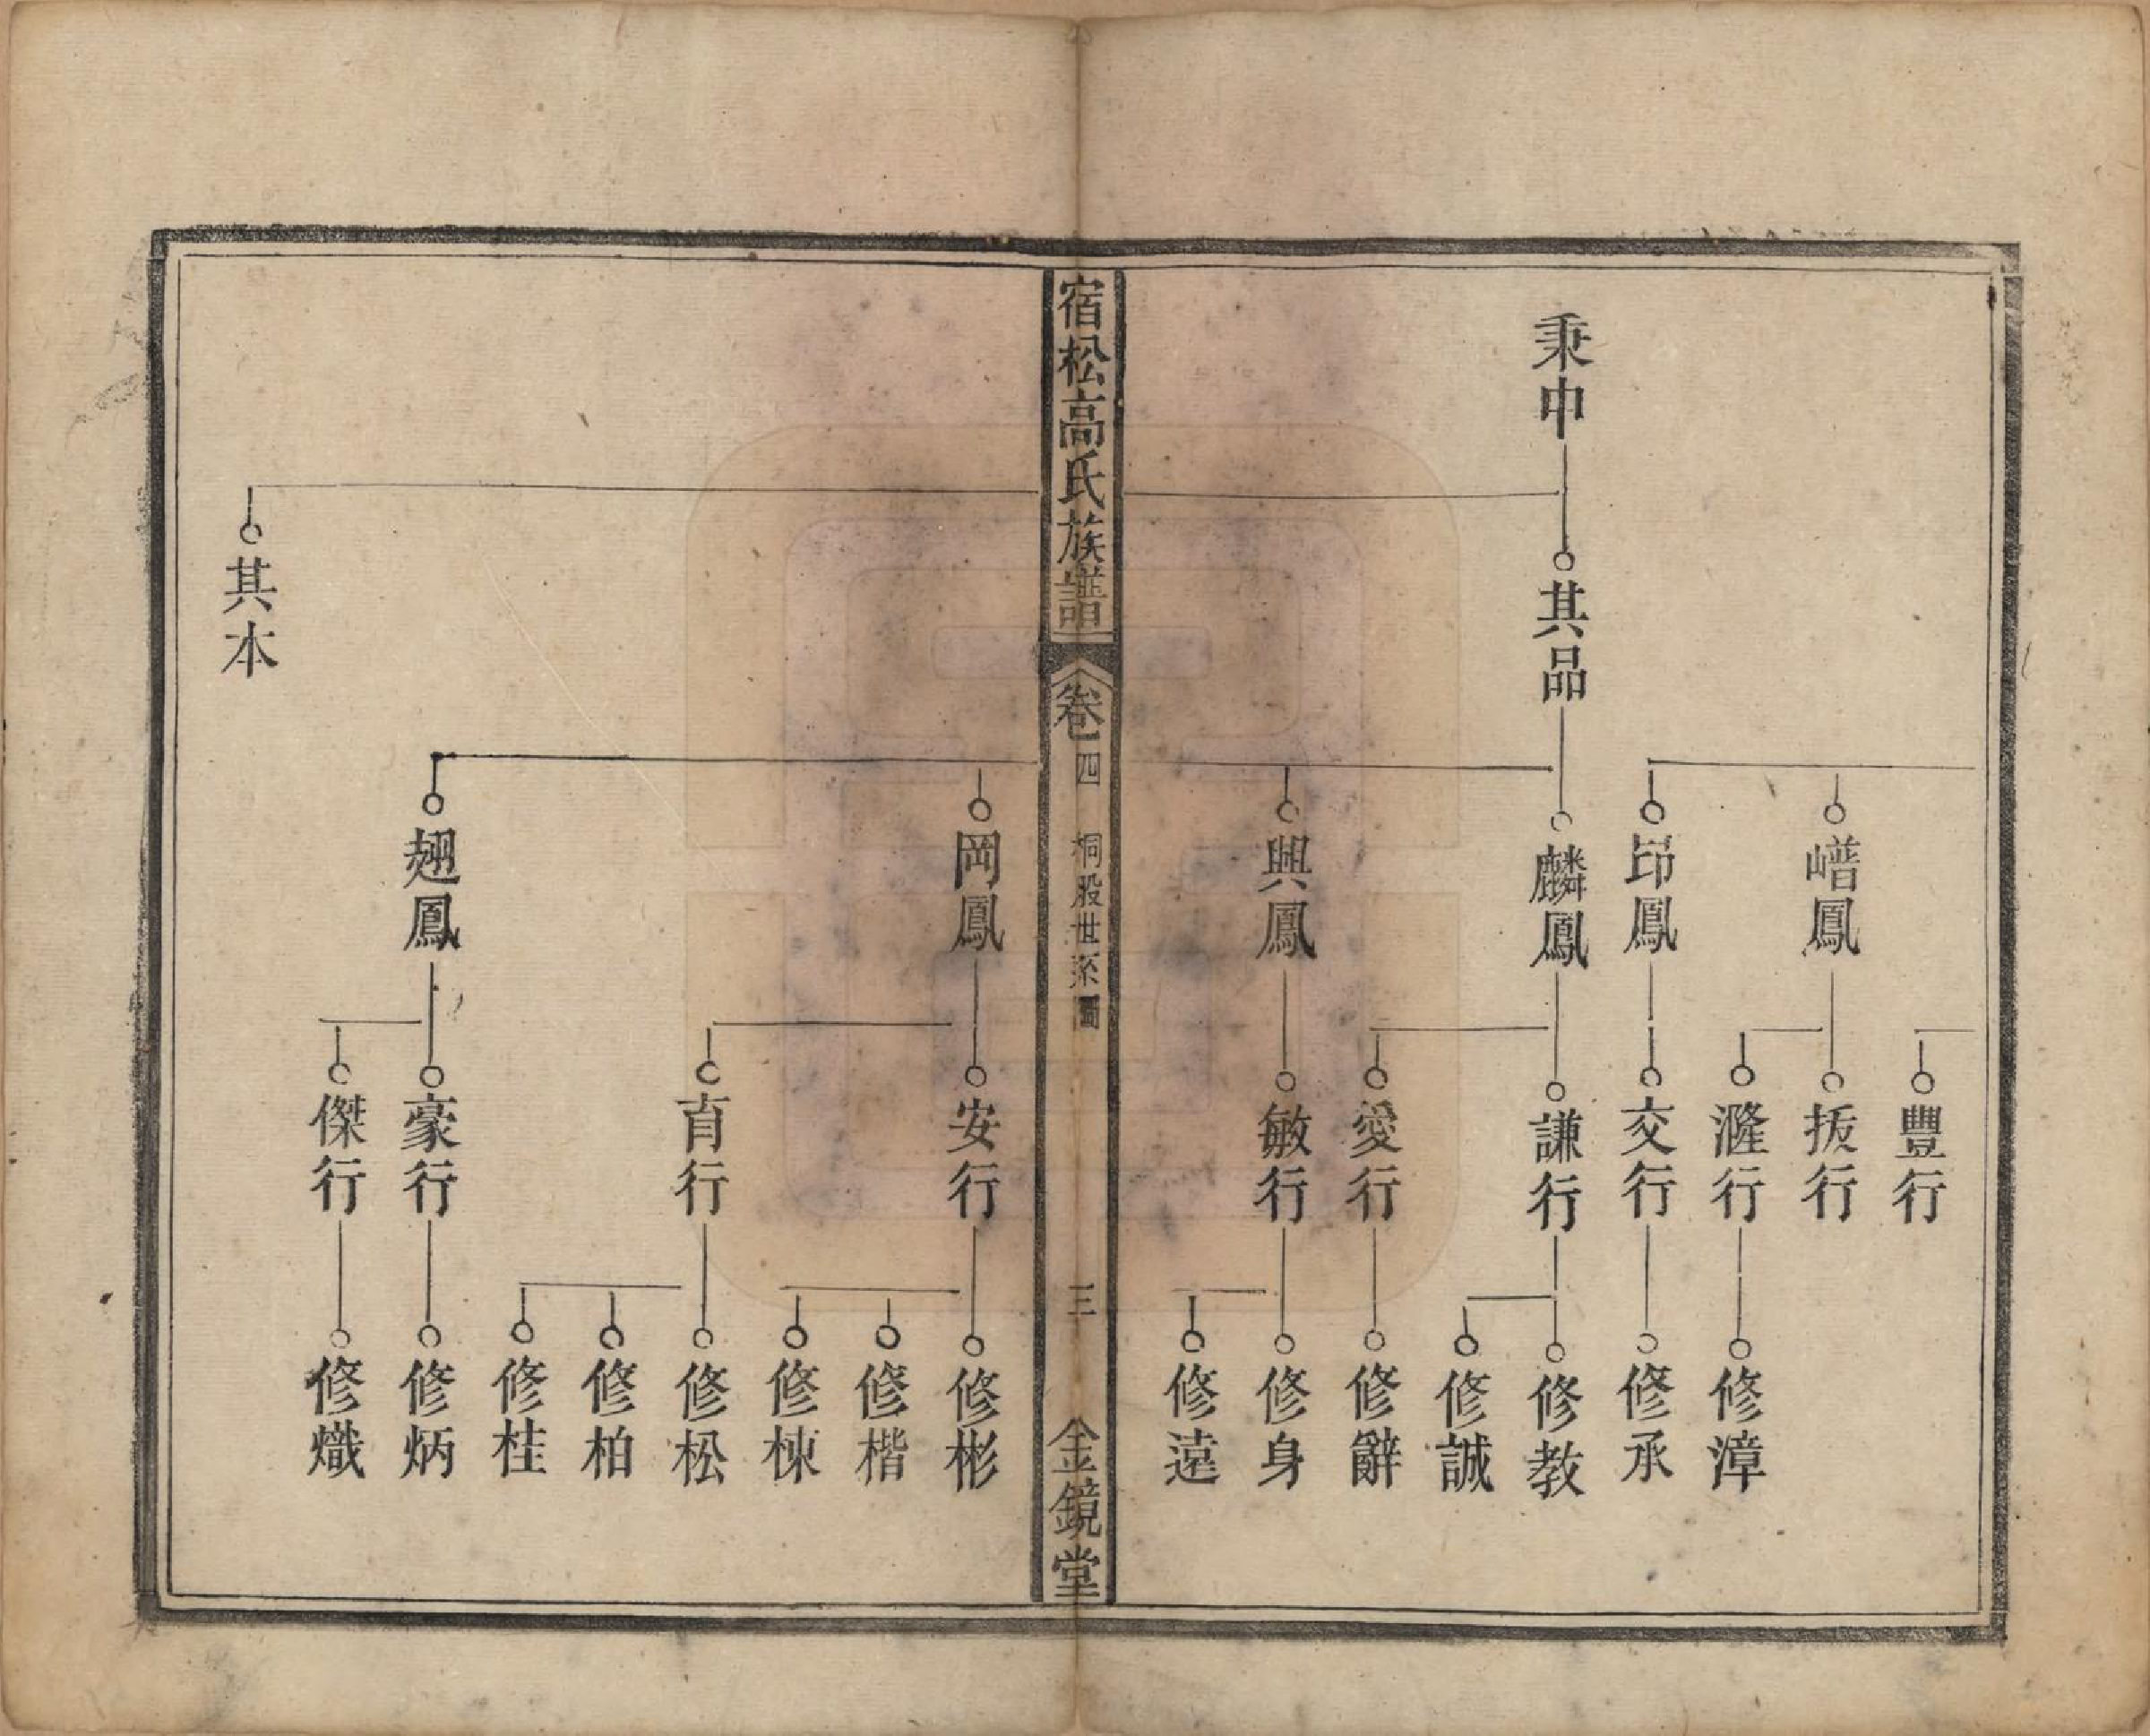 豐行
嶜鳳
扳行
漋行
修漳
昂鳳
交行
修承
秉中
其品
麟鳳
謙行
修教
修誠
愛行
修辭
興鳳
敏行
修身
修遠
宿松高氏族譜
卷四
桐股世系圖
三
金鏡堂
岡鳳
安行
修彬
修楷
修棟
育行
修松
修柏
修桂
翅鳳
豪行
修炳
傑行
修熾
其本